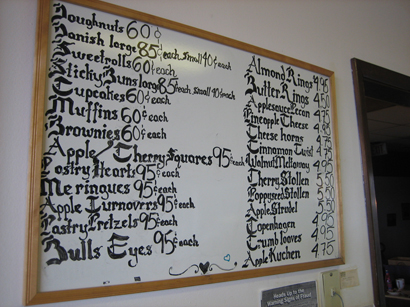 Doughnuts 60¢
Danish large 85¢ each small 40¢ each
Sweetrolls 60¢ each
Sticky Buns large 85¢ each Small 40¢ each
Cupcakes 60¢ each
Muffins 60¢ each
Brownies 60¢ each
Apple/Cherry Squares 95¢ each
Pastry Hearts 95¢ each
Meringues 95¢ each
Apple Turnovers 95¢ each
Pastry Pretzels 95¢ each
Bulls Eyes 95¢ each
Almond Rings 4.95
Butter Rings 4.50
Applesauce Pecan
Pineapple Cheese
Cheese horns
Cinnamon Twist
Walnut Meltaway
Cherry Stollen
Poppyseed Stollen
Apple Strudel
Copenhagen
Crumb loaves
Apple Kuchen 4.75
Heads Up to the
Warning Signs of Fraud